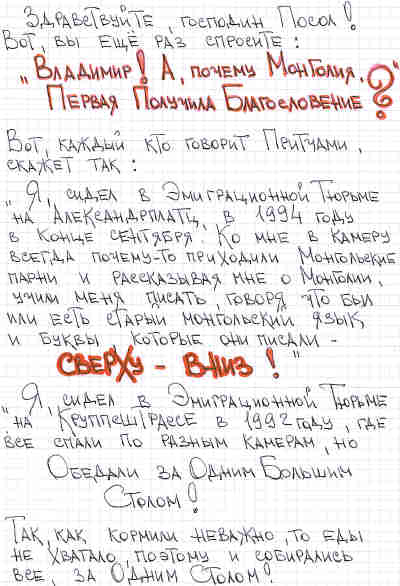 Здравствуйте, господин Посол!
Вот, вы ещё раз спросите:
„Владимир! А, почему Монголия,
Первая Получила Благословение?"
Вот, каждый кто говорит Притчами,
скажет так:
„Я, сидел в Эмиграционной Тюрьме
на Александрплатц, в 1994 году
в конце сентября. Ко мне в камеру
всегда почему-то приходили Монгольские
парни и рассказывая мне о Монголии,
учили меня писать, говоря что был
или есть старый монгольский язык
и буквы, которые они писали -
сверху - вниз!"
„Я, сидел в Эмиграционной Тюрьме
на Круппештрассе в 1992 году, где
все спали по разным камерам, но
Обедали за Одним Большим
Столом!
Так, как кормили неважно, то еды
не хватало, поэтому и собирались
все, за Одним Столом!